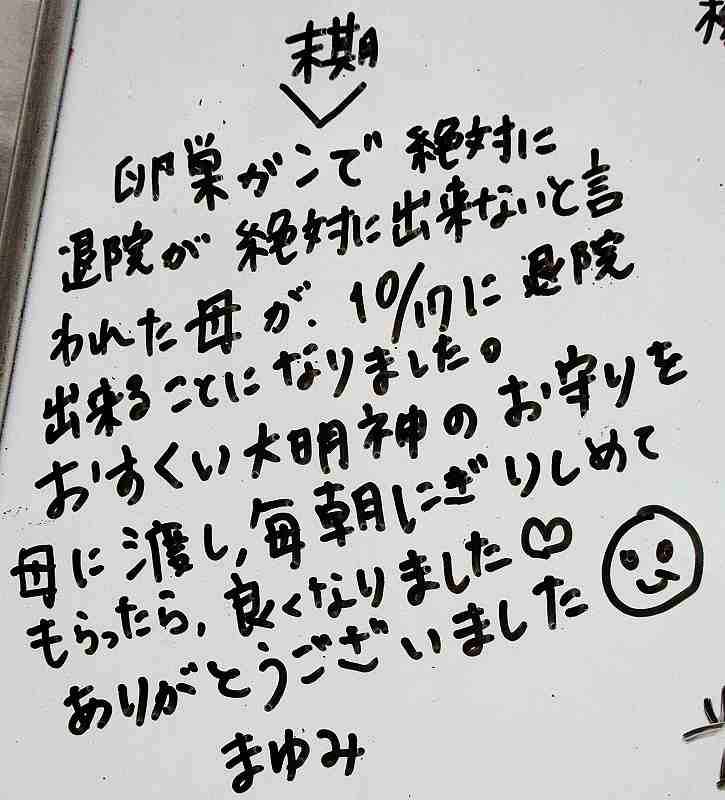 末期
卵巣がンで 絶対に
退院が 絶対に出来ないと言
われた母が、10/17に退院
出来ることになりました。
おすくい大明神のお守りを
母に渡し、毎朝にぎりしめて
もらったら、良くなりました♡
ありがとうございました
まゆみ